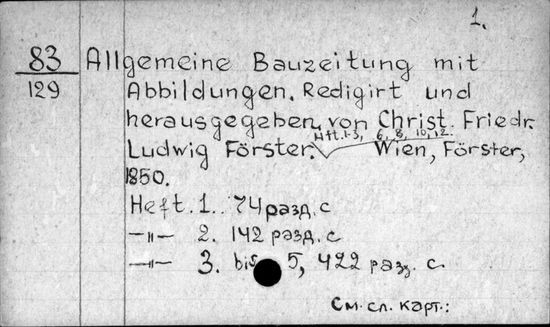 1.
83 Allgemeine Bauzeitung mit
129 Abbildungen. Redigirt und
herausgegeben von Christ. Friedr.
Hft. 1-3, 6, 8, 10, 12.
Ludwig Förster. Wien, Förster,
1850.
Heft. 1.. 74 разд. с
—"— 2. 142 разд. с
—"— 3. bis 5, 422 разд. с.
См. сл. карт.: